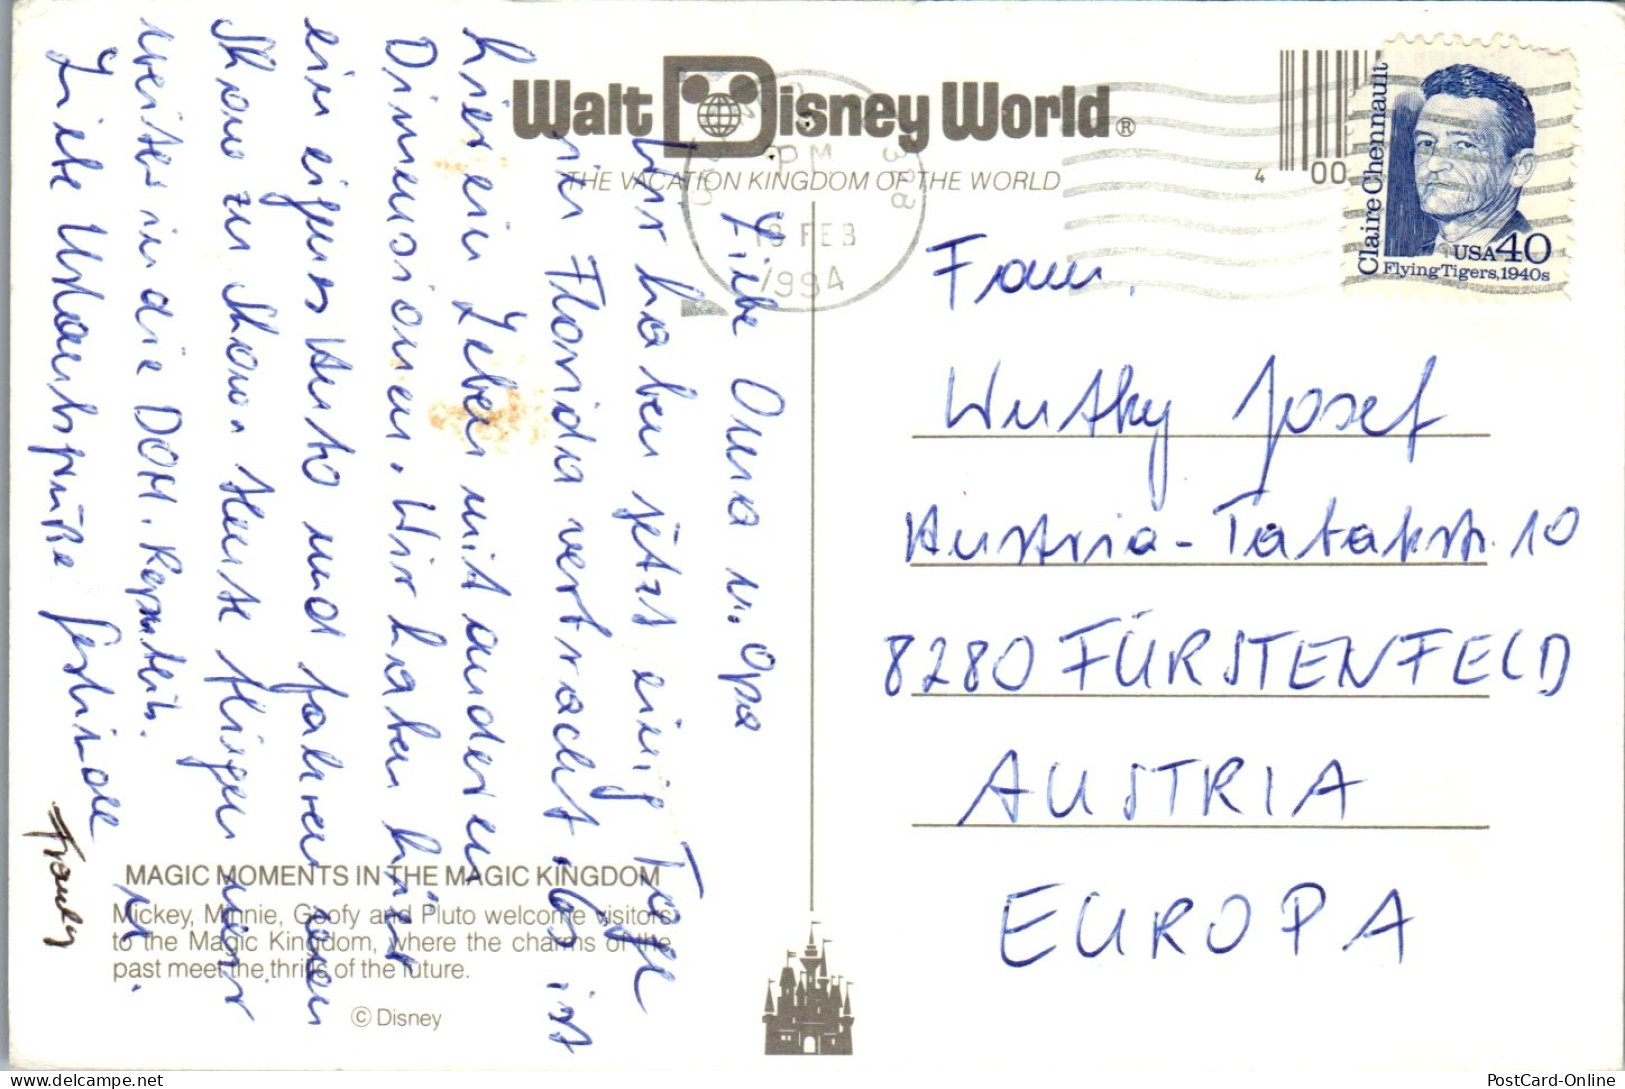 Walt Disney World®
THE VACATION KINGDOM OF THE WORLD
Liebe Oma u. Opa
Wir haben jetzt einig Tage
in Florida verbracht. Es ist
hier ein Leben mit anderen
Dimensionen. Wir haben hier
ein eigenes Auto und fahren von
Show zu Show. Heute fliegen wir
weiter in die DOM. Republik.
Liebe Urlaubsgrüße Gerlinde u.
Franky
MAGIC MOMENTS IN THE MAGIC KINGDOM
Mickey, Minnie, Goofy and Pluto welcome visitors
to the Magic Kingdom, where the charms of the
past meet the thrills of the future.
© Disney
PM
328
18 FEB
1994
4 00
Claire Chennault
USA 40
Flying Tigers, 1940s
Fam.
Wutky Josef
Austria-Tatakstr. 10
8280 FÜRSTENFELD
AUSTRIA
EUROPA
PostCard-Online